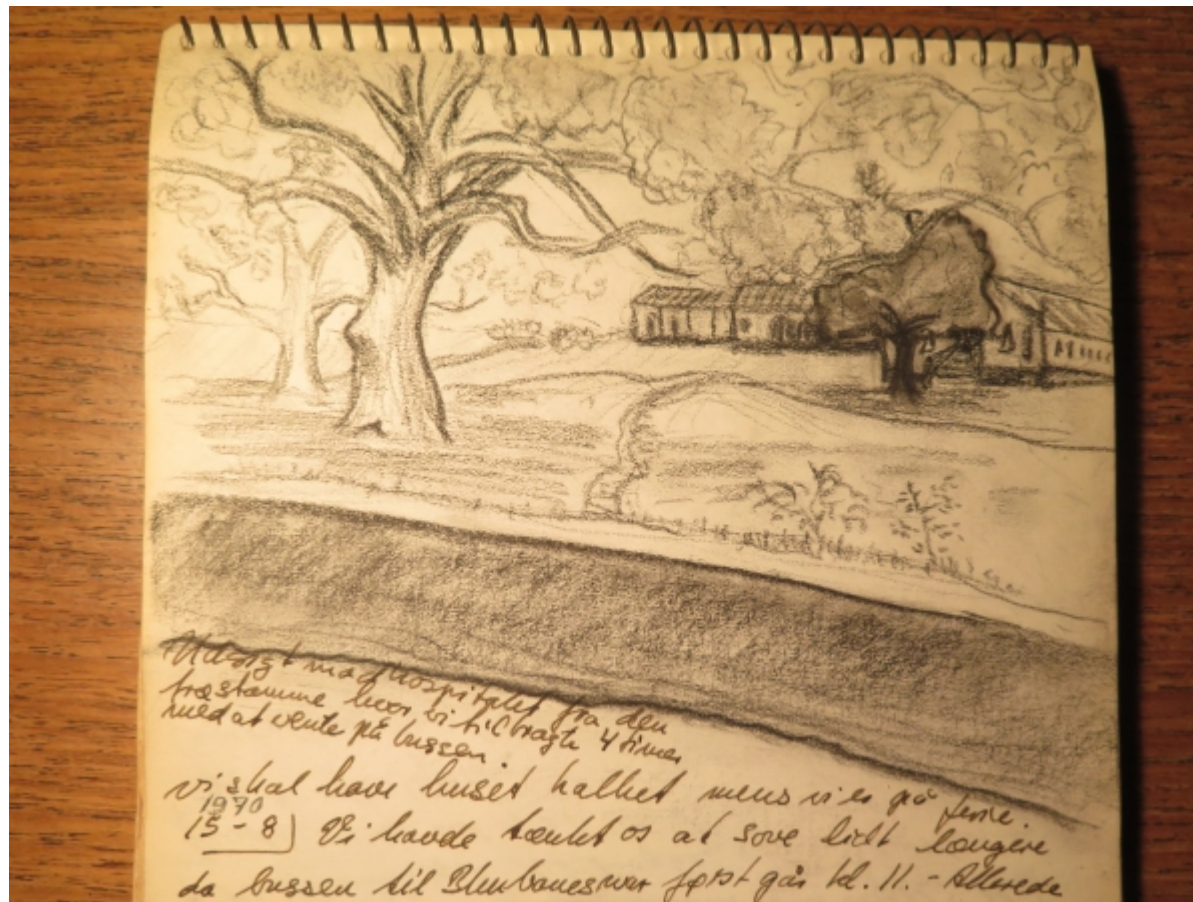 Udsigt mod hospitalet fra den
træstamme hvor vi tilbragte 4 timer
med at vente på bussen.
vi skal have huset kalket mens vi er på ferie.
1970
15-8) Vi havde tænkt os at sove lidt længere
da bussen til Bhubaneswar først går kl. 11. - Allerede